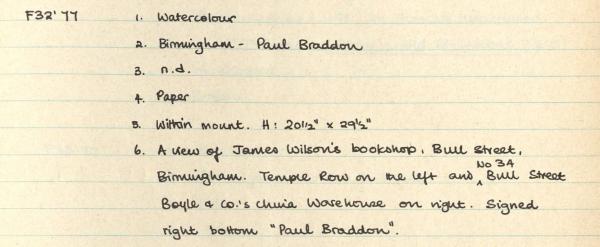 F32'77 1. Watercolour
2. Birmingham - Paul Braddon
3. n.d.
4. Paper
5. Within mount. H: 20½" x 29½"
6. A view of James Wilson's bookshop, Bull Street,
Birmingham. Temple Row on the left and ^No 34 Bull Street
Boyle & Co.'s China Warehouse on right. Signed
right bottom "Paul Braddon".